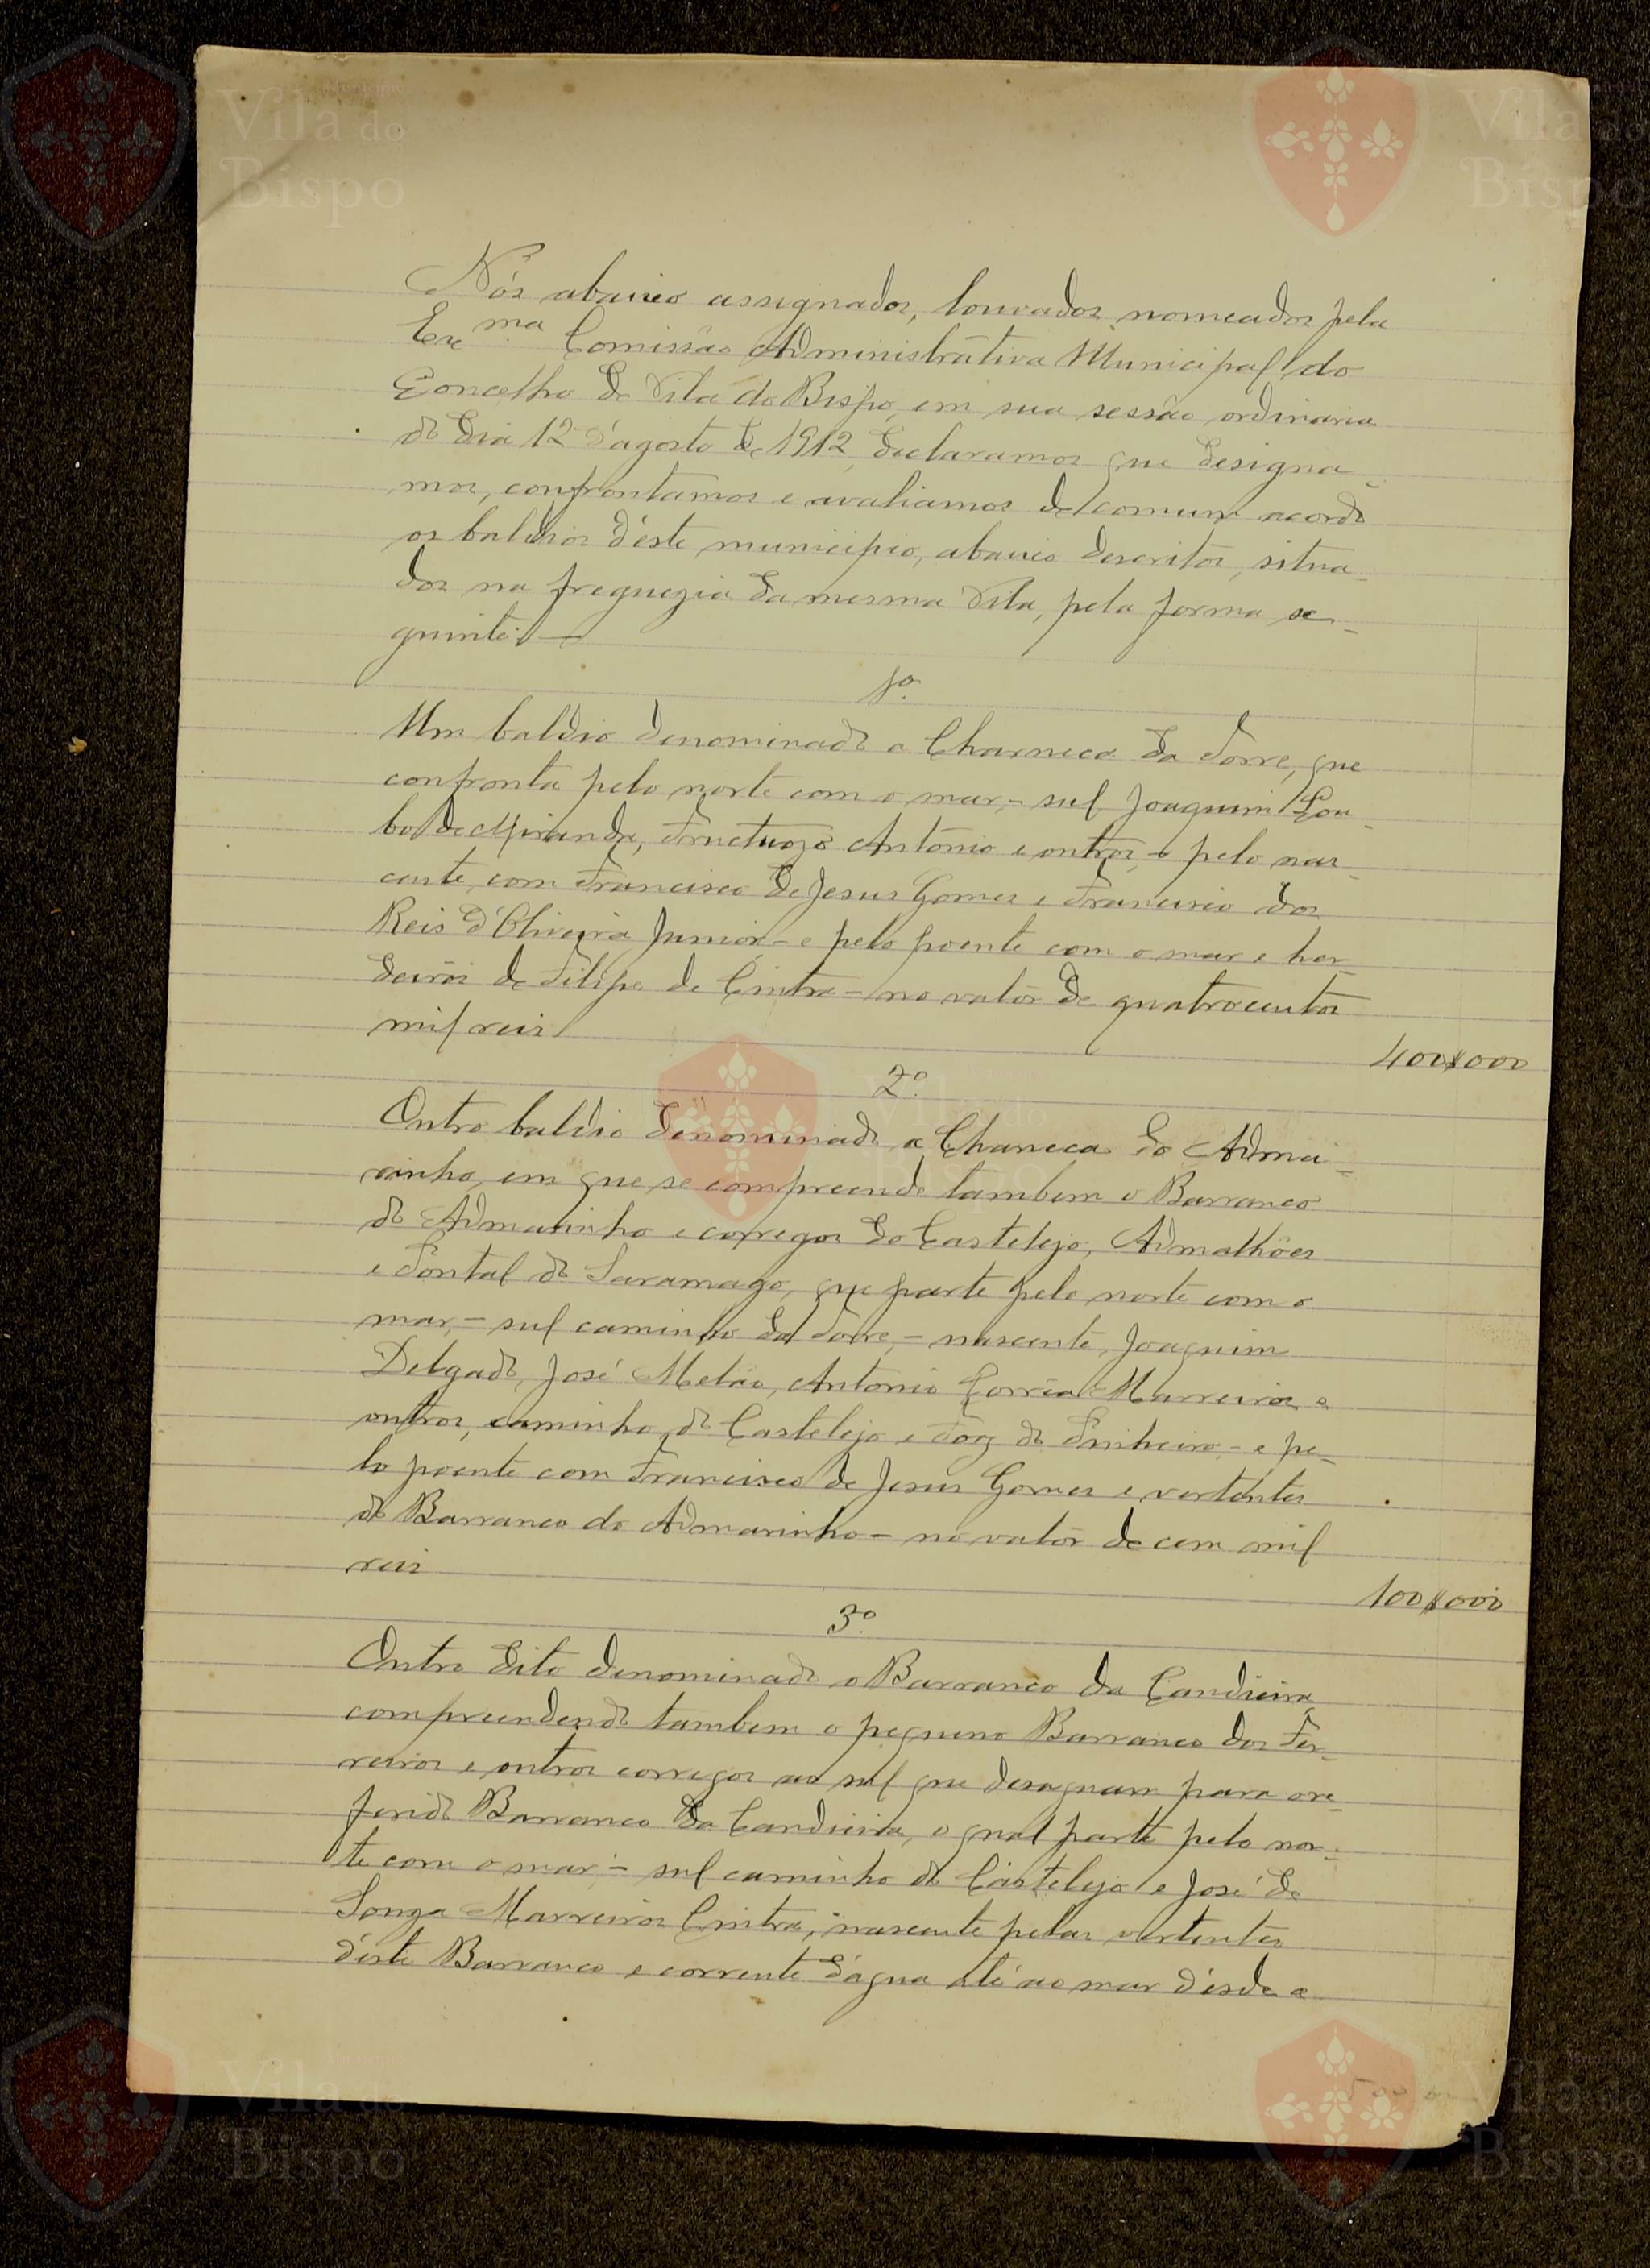 Nós abaixo assignados, louvados nomeados pela
Exma Comissão Administrativa Municipal do
Concelho de Vila do Bispo, em sua sessão ordinaria
do dia 12 d'agosto de 1912, declaramos que designa-
mos, confrontamos e avaliamos de comum acordo
os baldios d'éste municipio, abaixo descritos, situa-
dos na freguezia da mesma Vila, pela forma se-
guinte:—
1º.
Um baldio denominado a Charneca da Torre, que
confronta pelo norte com o mar,- sul Joaquim Lou-
bo de Miranda, Fructuozo António e outros,- pelo nas-
cente, com Francisco de Jesus Gomes e Francisco dos
Reis d'Oliveira Junior - e pelo poente com o mar e her-
deiros de Filipe de Cintra - no valôr de quatrocentos
mil reis
400$000
2º.
Outro baldio denominado a Charneca do Admo-
rinho, em que se compreende tambem o Barranco
do Admarinho e corregos do Castelejo, Admalhões
e Pontal do Saramago, que parte pelo norte com o
mar,- sul caminho da Torre,- nascente, Joaquim
Delgado, José Melão, António Corrêa Marreiros e
outros, caminho do Castelejo e Foz do Pinheiro,- e pe-
lo poente com Francisco de Jesus Gomes e vertentes
do Barranco do Admarinho - no valôr de cem mil
reis
100$000
3º.
Outro dito denominado o Barranco da Candieira
compreendendo tambem o pequeno Barranco dos Fer-
reiros e outros corregos ao sul que desaguam para o re-
ferido Barranco da Candieira, o qual parte pelo nor-
te com o mar - sul caminho do Castelejo e José de
Souza Marreiros Cintra, nascente pelas vertentes
d'éste Barranco e corrente d'água até ao mar désde a
Vila do
Bispo
Vila do
Bispo
Vila do
Bispo
Vila do
Bispo
Vila do
Bispo